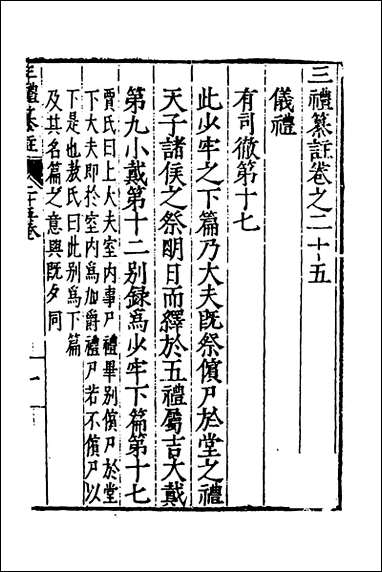 三禮纂註卷之二十五
儀禮
有司徹第十七
此少牢之下篇乃大夫既祭儐尸於堂之禮
天子諸侯之祭明日而繹於五禮屬吉大戴
第九小戴第十二别録爲少牢下篇第十七
賈氏曰上大夫室内事尸禮畢别儐尸於堂
下大夫即於室内爲加爵禮尸若不儐尸以
下是也敖氏曰此别爲下篇
及其名篇之意與既夕同
三禮纂註
二十五卷
一